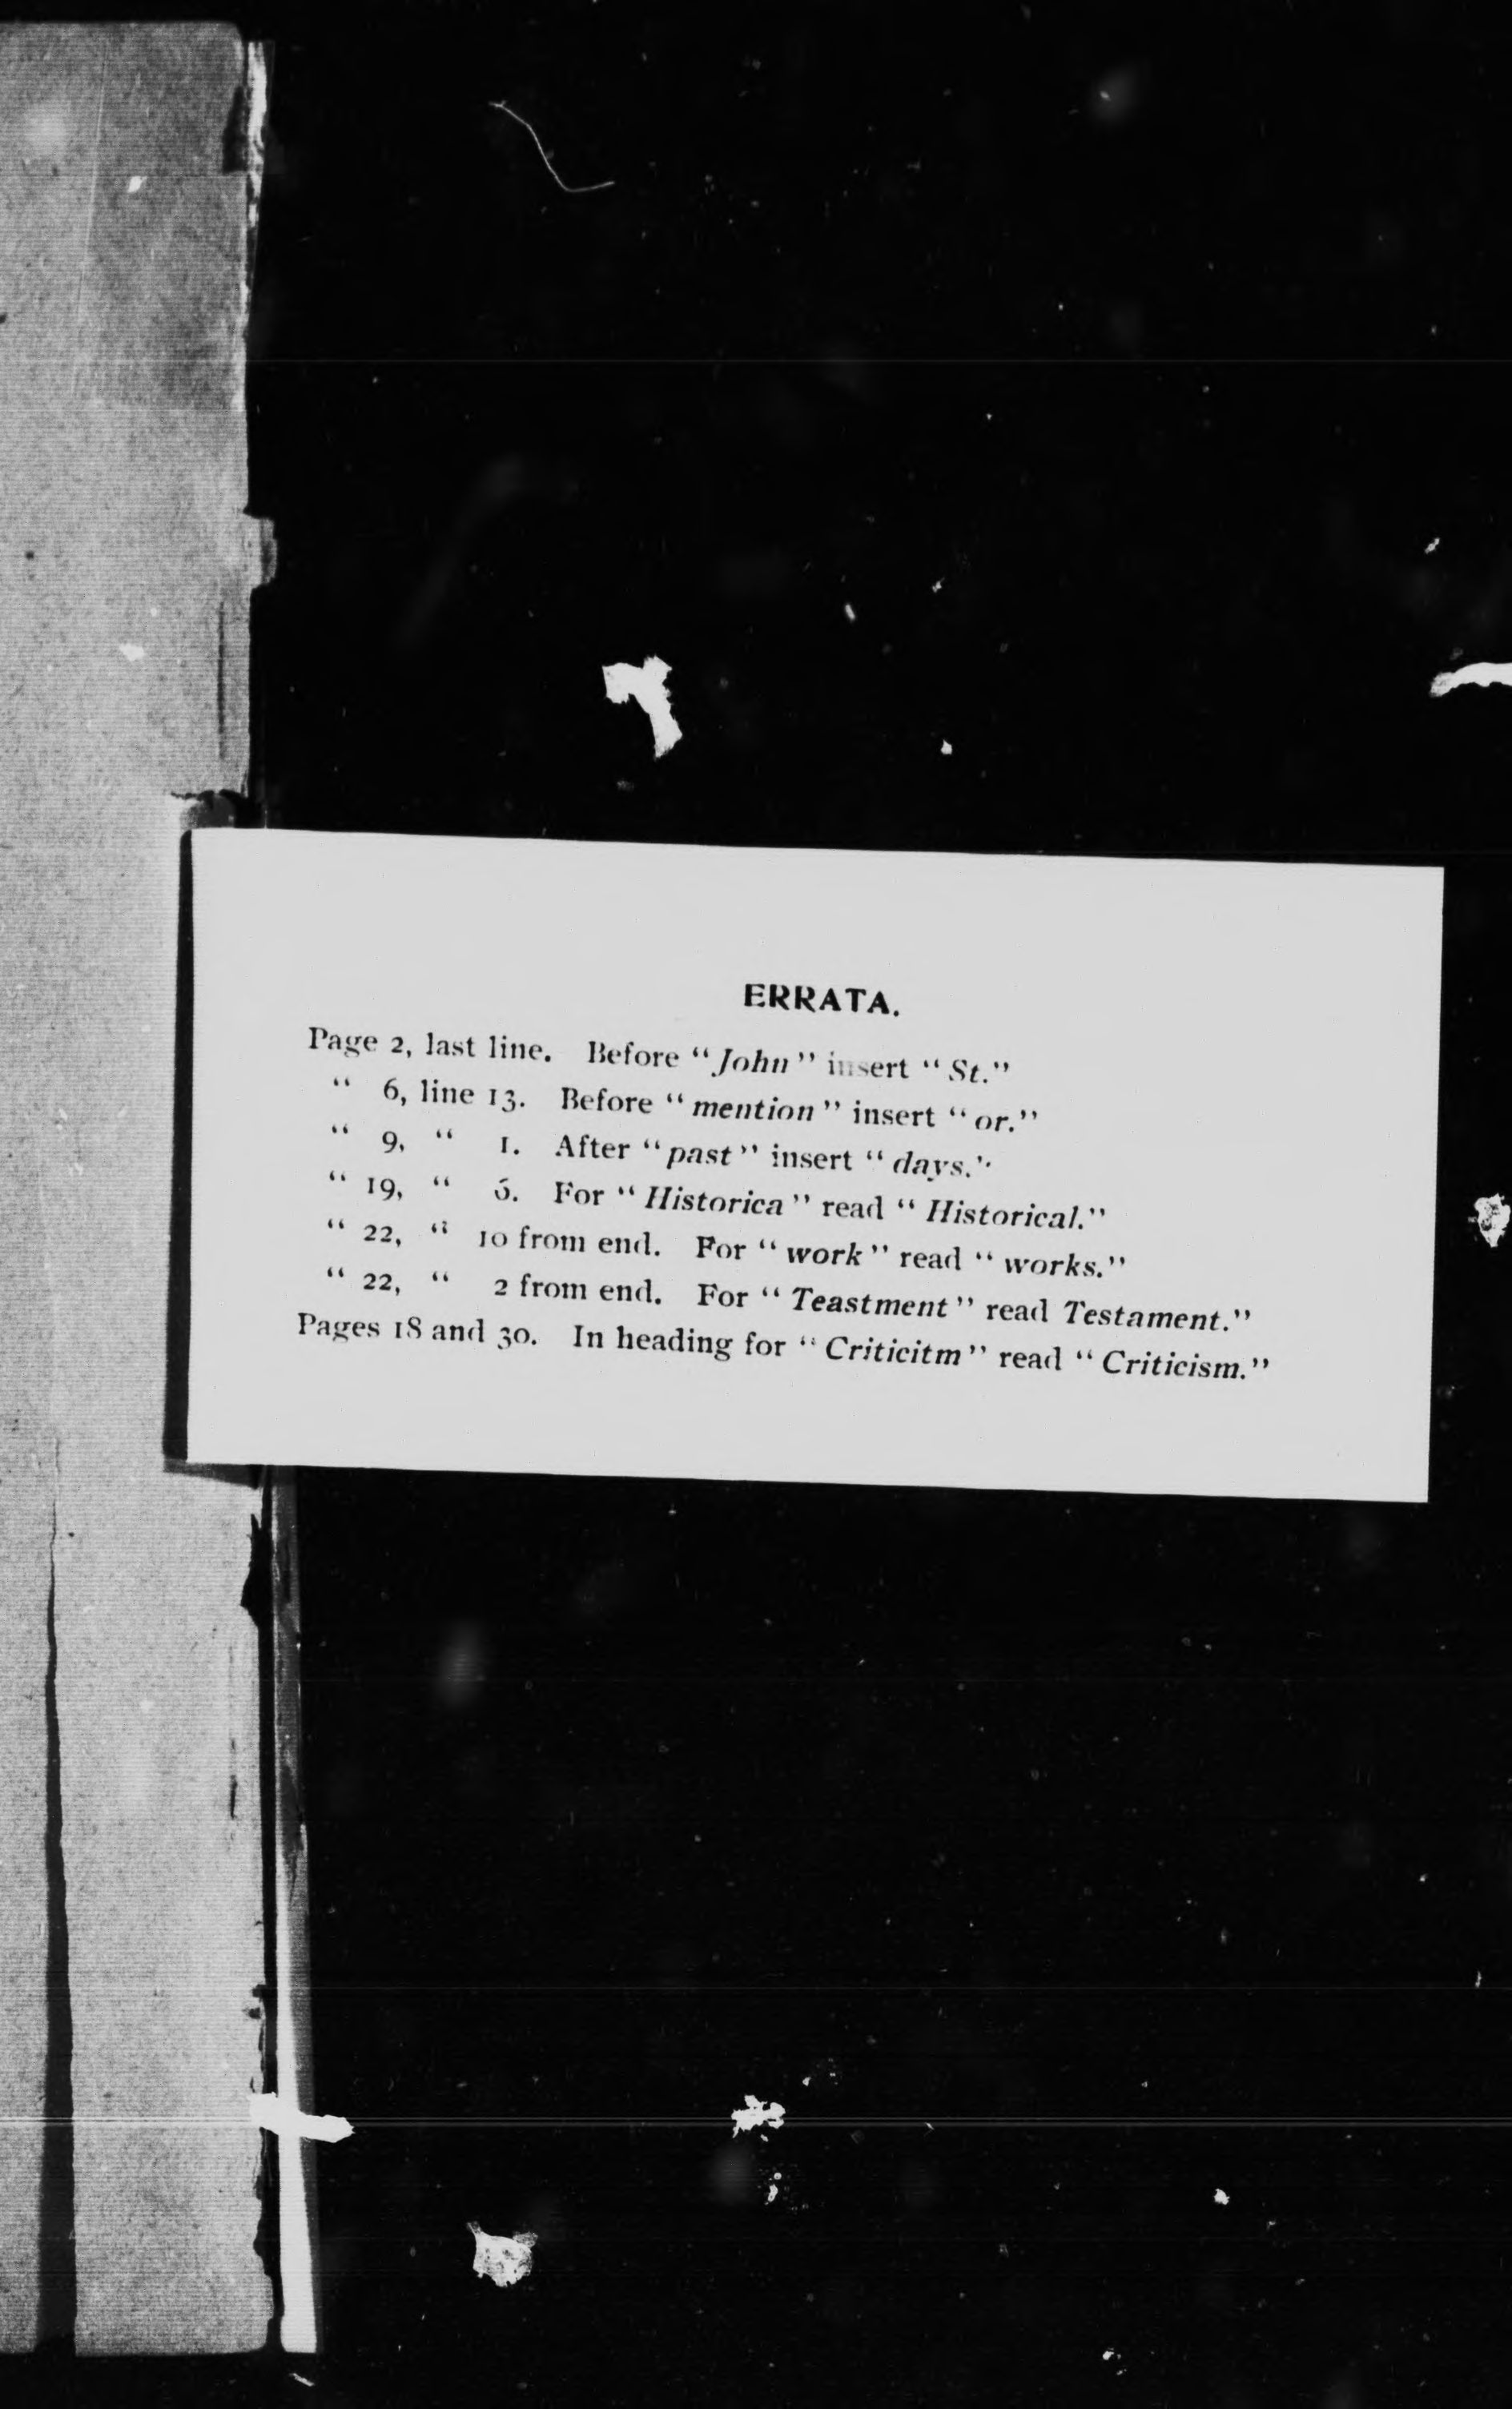 ERRATA.
Page 2, last line. Before "John" insert "St."
" 6, line 13. Before "mention" insert "or."
" 9, " 1. After "past" insert "days."
" 19, " 6. For "Historica" read "Historical."
" 22, " 10 from end. For "work" read "works."
" 22, " 2 from end. For "Teastment" read Testament."
Pages 18 and 30. In heading for "Criticitm" read "Criticism."